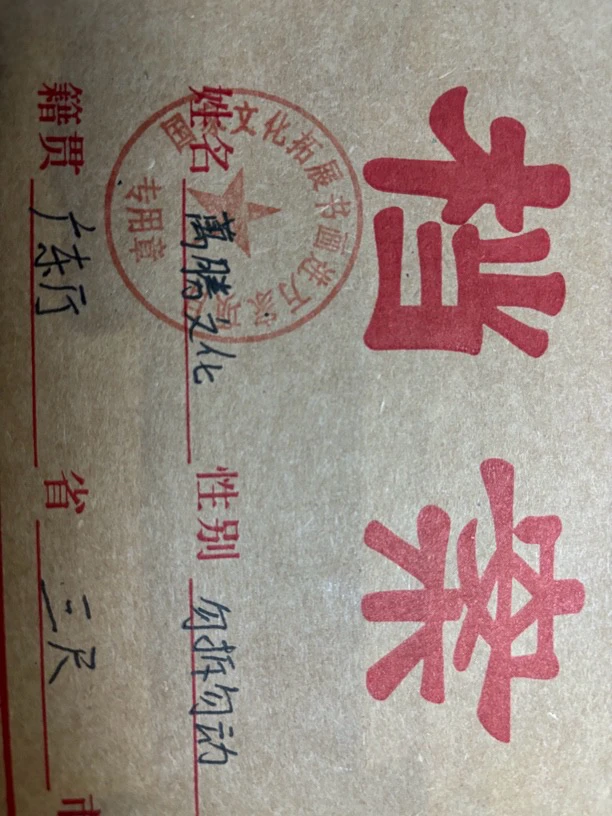 档案
姓名 萬腾文化 性别 勿拆勿动
籍贯 广东厅 省 三尺 市
文化拓展书画进万家
专用章